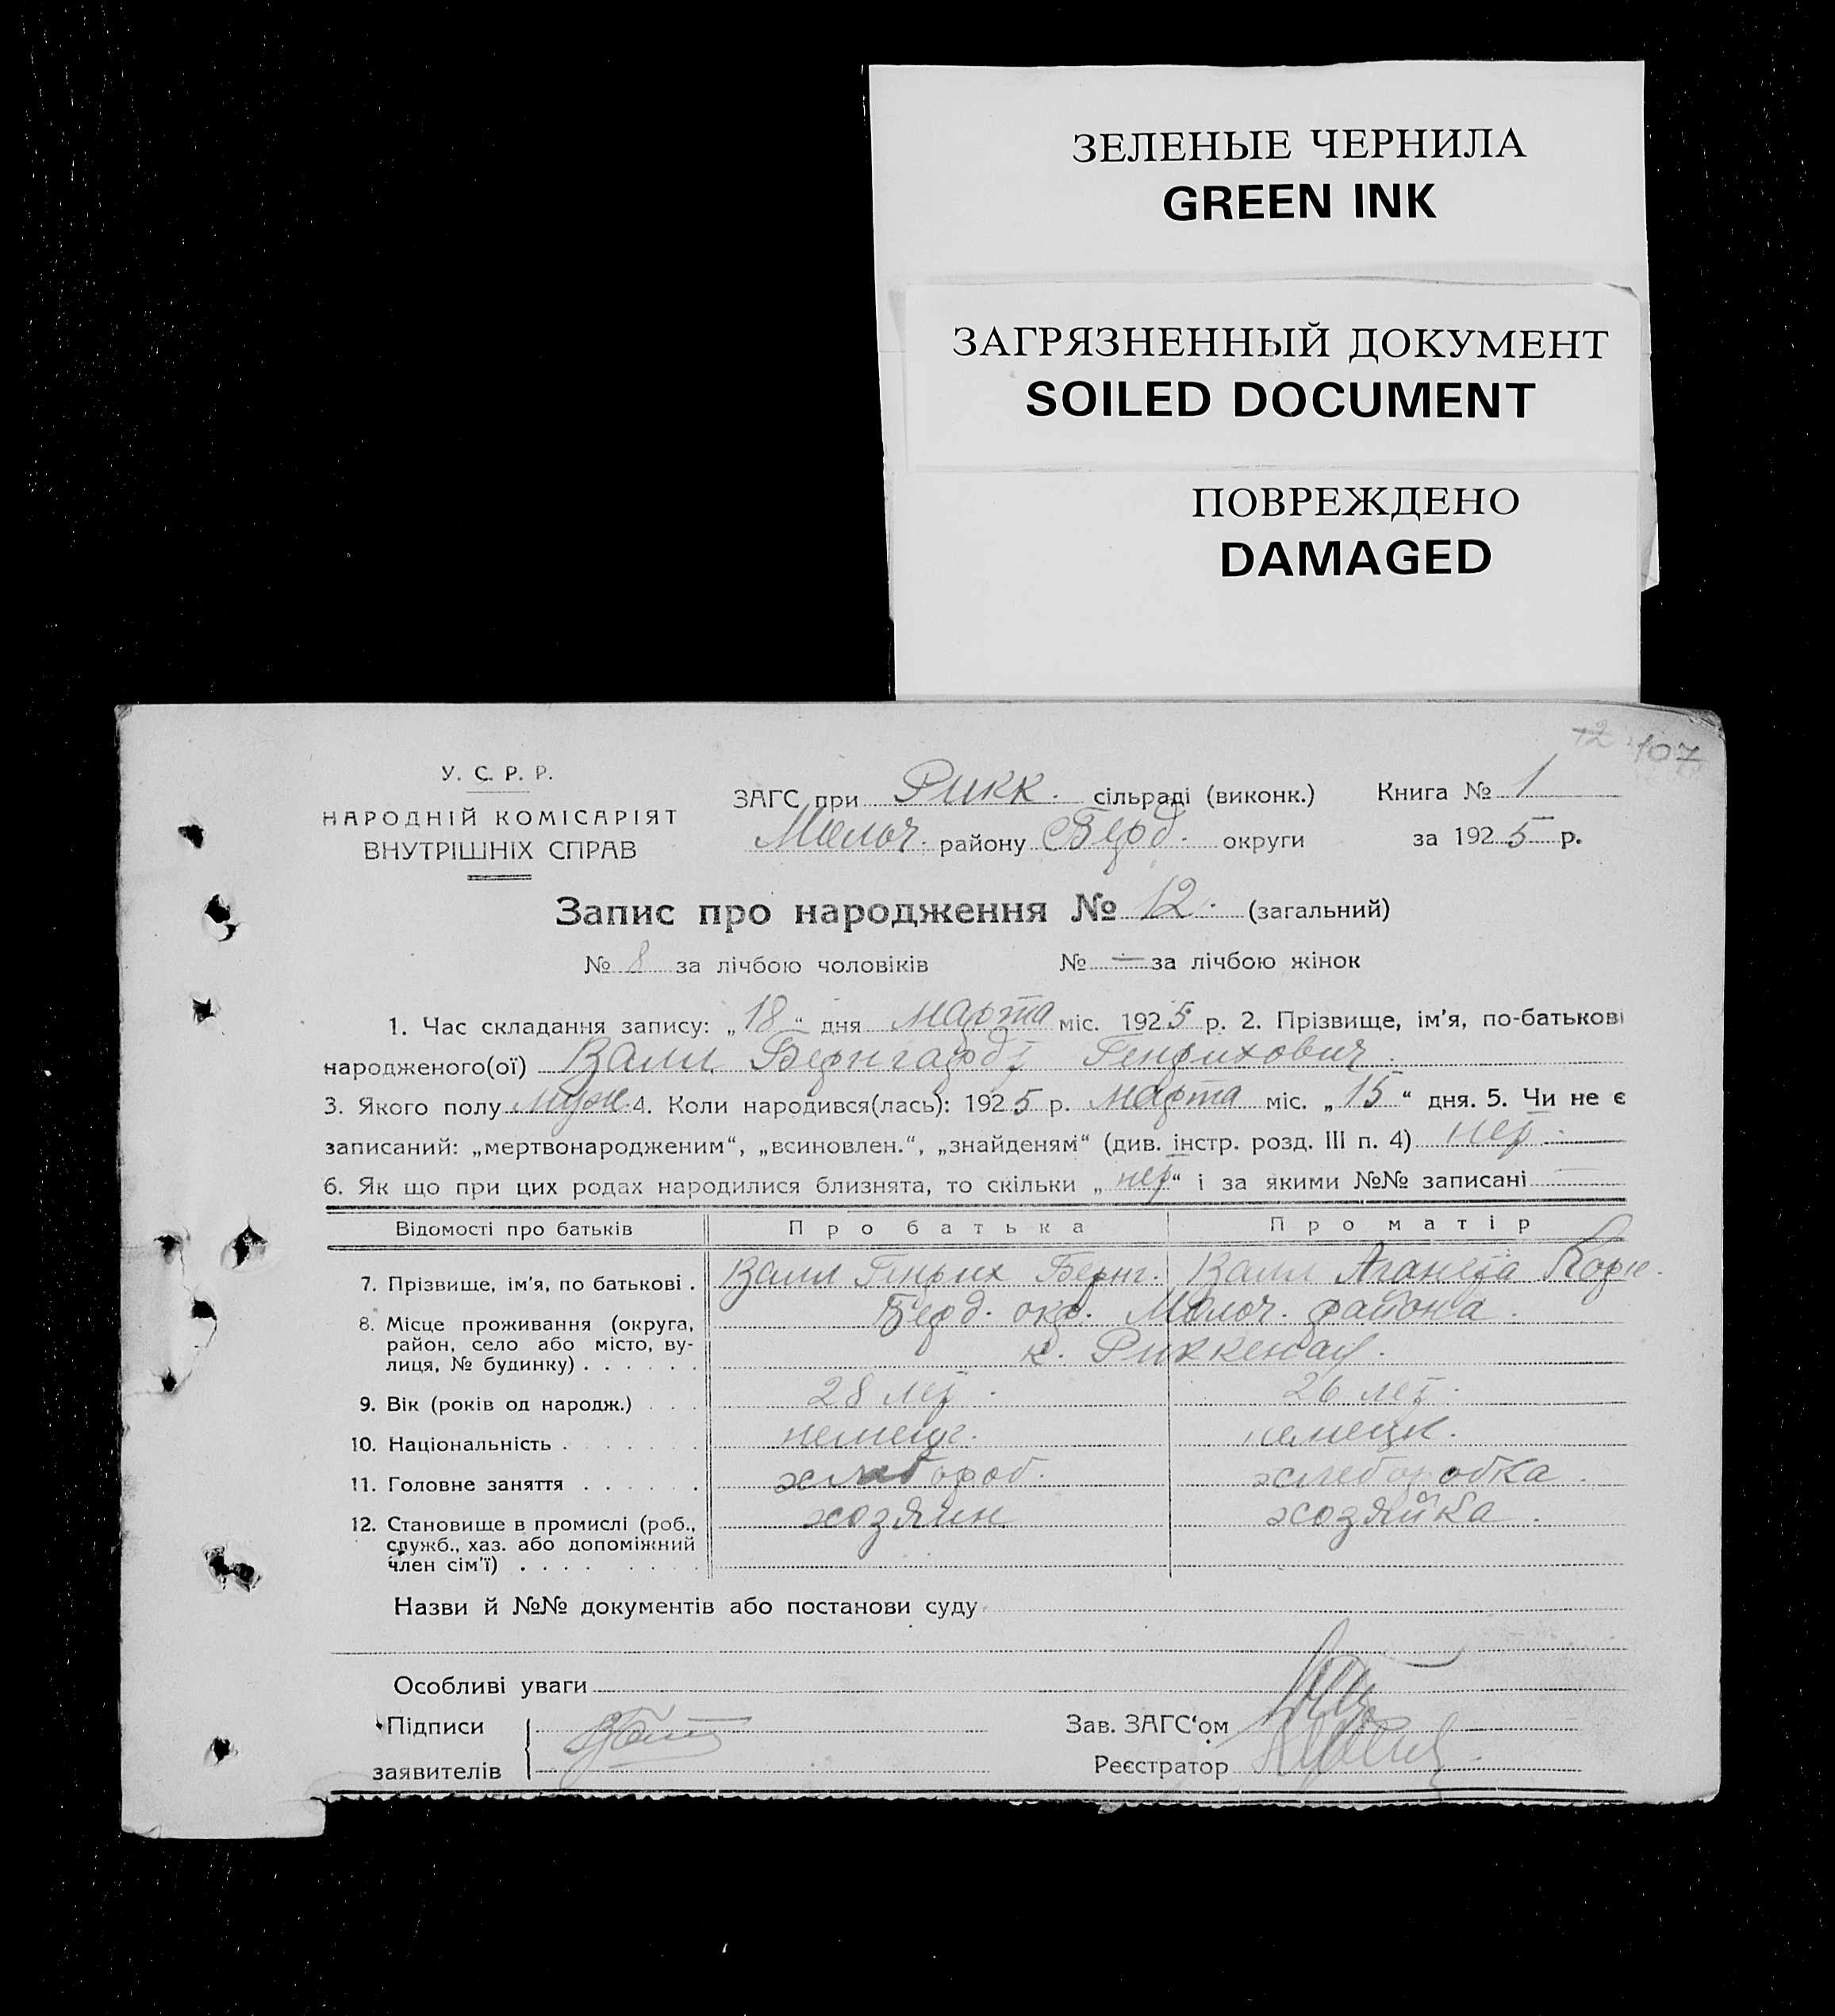 ЗЕЛЕНЫЕ ЧЕРНИЛА
GREEN INK
ЗАГРЯЗНЕННЫЙ ДОКУМЕНТ
SOILED DOCUMENT
ПОВРЕЖДЕНО
DAMAGED
12 107
У. С. Р. Р.
НАРОДНІЙ КОМІСАРІЯТ
ВНУТРІШНІХ СПРАВ
ЗАГС при Рикк. сільраді (виконк.) Книга № 1
Молоч. району Берд. округи за 1925 р.
Запис про народження № 12. (загальний)
№ 8 за лічбою чоловіків № — за лічбою жінок
1. Час складання запису: „18“ дня марта міс. 1925 р. 2. Прізвище, ім'я, по-батькові
народженого(ої) Валл Бернгардт Генрихович.
3. Якого полу муж. 4. Коли народився(лась): 1925 р. марта міс. „15“ дня. 5. Чи не є
записаний: „мертвонародженим“, „всиновлен.“, „знайденям“ (див. інстр. розд. III п. 4) нет.
6. Як що при цих родах народилися близнята, то скільки „нет“ і за якими №№ записані —
Відомості про батьків Про батька Про матір
7. Прізвище, ім'я, по батькові . Валл Генрих Бернг. Валл Аганета Корн.
8. Місце проживання (округа, Берд. окр. Молоч. района.
район, село або місто, ву-
лиця, № будинку) . . . . . . к. Риккенау.
9. Вік (років од народж.) . . . 28 лет. 26 лет.
10. Національність . . . . . . . немецк. немецк.
11. Головне заняття . . . . . . хлебороб. хлеборобка.
12. Становище в промислі (роб., хозяин хозяйка.
служб., хаз. або допоміжний
член сім'ї) . . . . . . . .
Назви й №№ документів або постанови суду
Особливі уваги
Підписи
заявителів
Зав. ЗАГС‘ом
Реєстратор